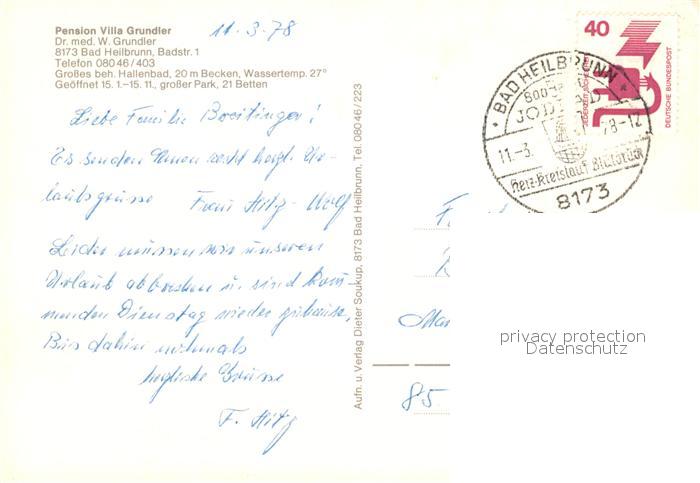 Pension Villa Grundler
Dr. med. W. Grundler
8173 Bad Heilbrunn, Badstr. 1
Telefon 08046/403
Großes beh. Hallenbad, 20 m Becken, Wassertemp. 27°
Geöffnet 15. 1.–15. 11., großer Park, 21 Betten
11.3.78
Liebe Familie Breitinger!
Es senden Ihnen recht herzl. Ur-
laubsgrüsse Frau Hitz-Wolf
Leider müssen wir unseren
Urlaub abbrechen u. sind kom-
menden Dienstag wieder zuhause,
Bis dahin nochmals
herzliche Grüsse
F. Hitz
Aufn. u. Verlag Dieter Soukup, 8173 Bad Heilbrunn, Tel. 08046/223
40
JEDERZEIT SICHERHEIT
DEUTSCHE BUNDESPOST
BAD HEILBRUNN
JOD
11.-3. 78-12
Herz-Kreislauf Blutdruck
8173
85
privacy protection
Datenschutz